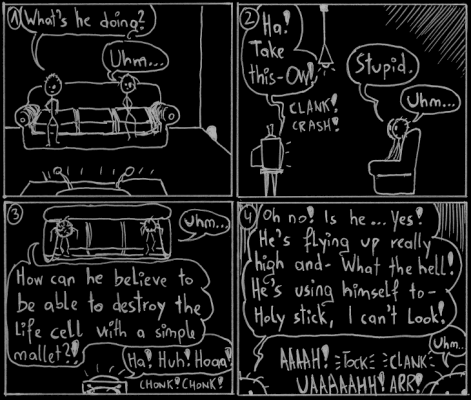 1 What's he doing?
Uhm...
2 Ha!
Take
this-Ow!
CLANK!
CRASH!
Stupid.
Uhm...
3 Uhm...
How can he believe to
be able to destroy the
life cell with a simple
mallet?!
Ha! Huh! Hoaa!
CHONK! CHONK!
4 Oh no! Is he... Yes!
He's flying up really
high and- What the hell!
He's using himself to-
Holy stick, I can't look!
Uhm..
AAAAH! TOCK CLANK
UAAAAAHH! ARR!